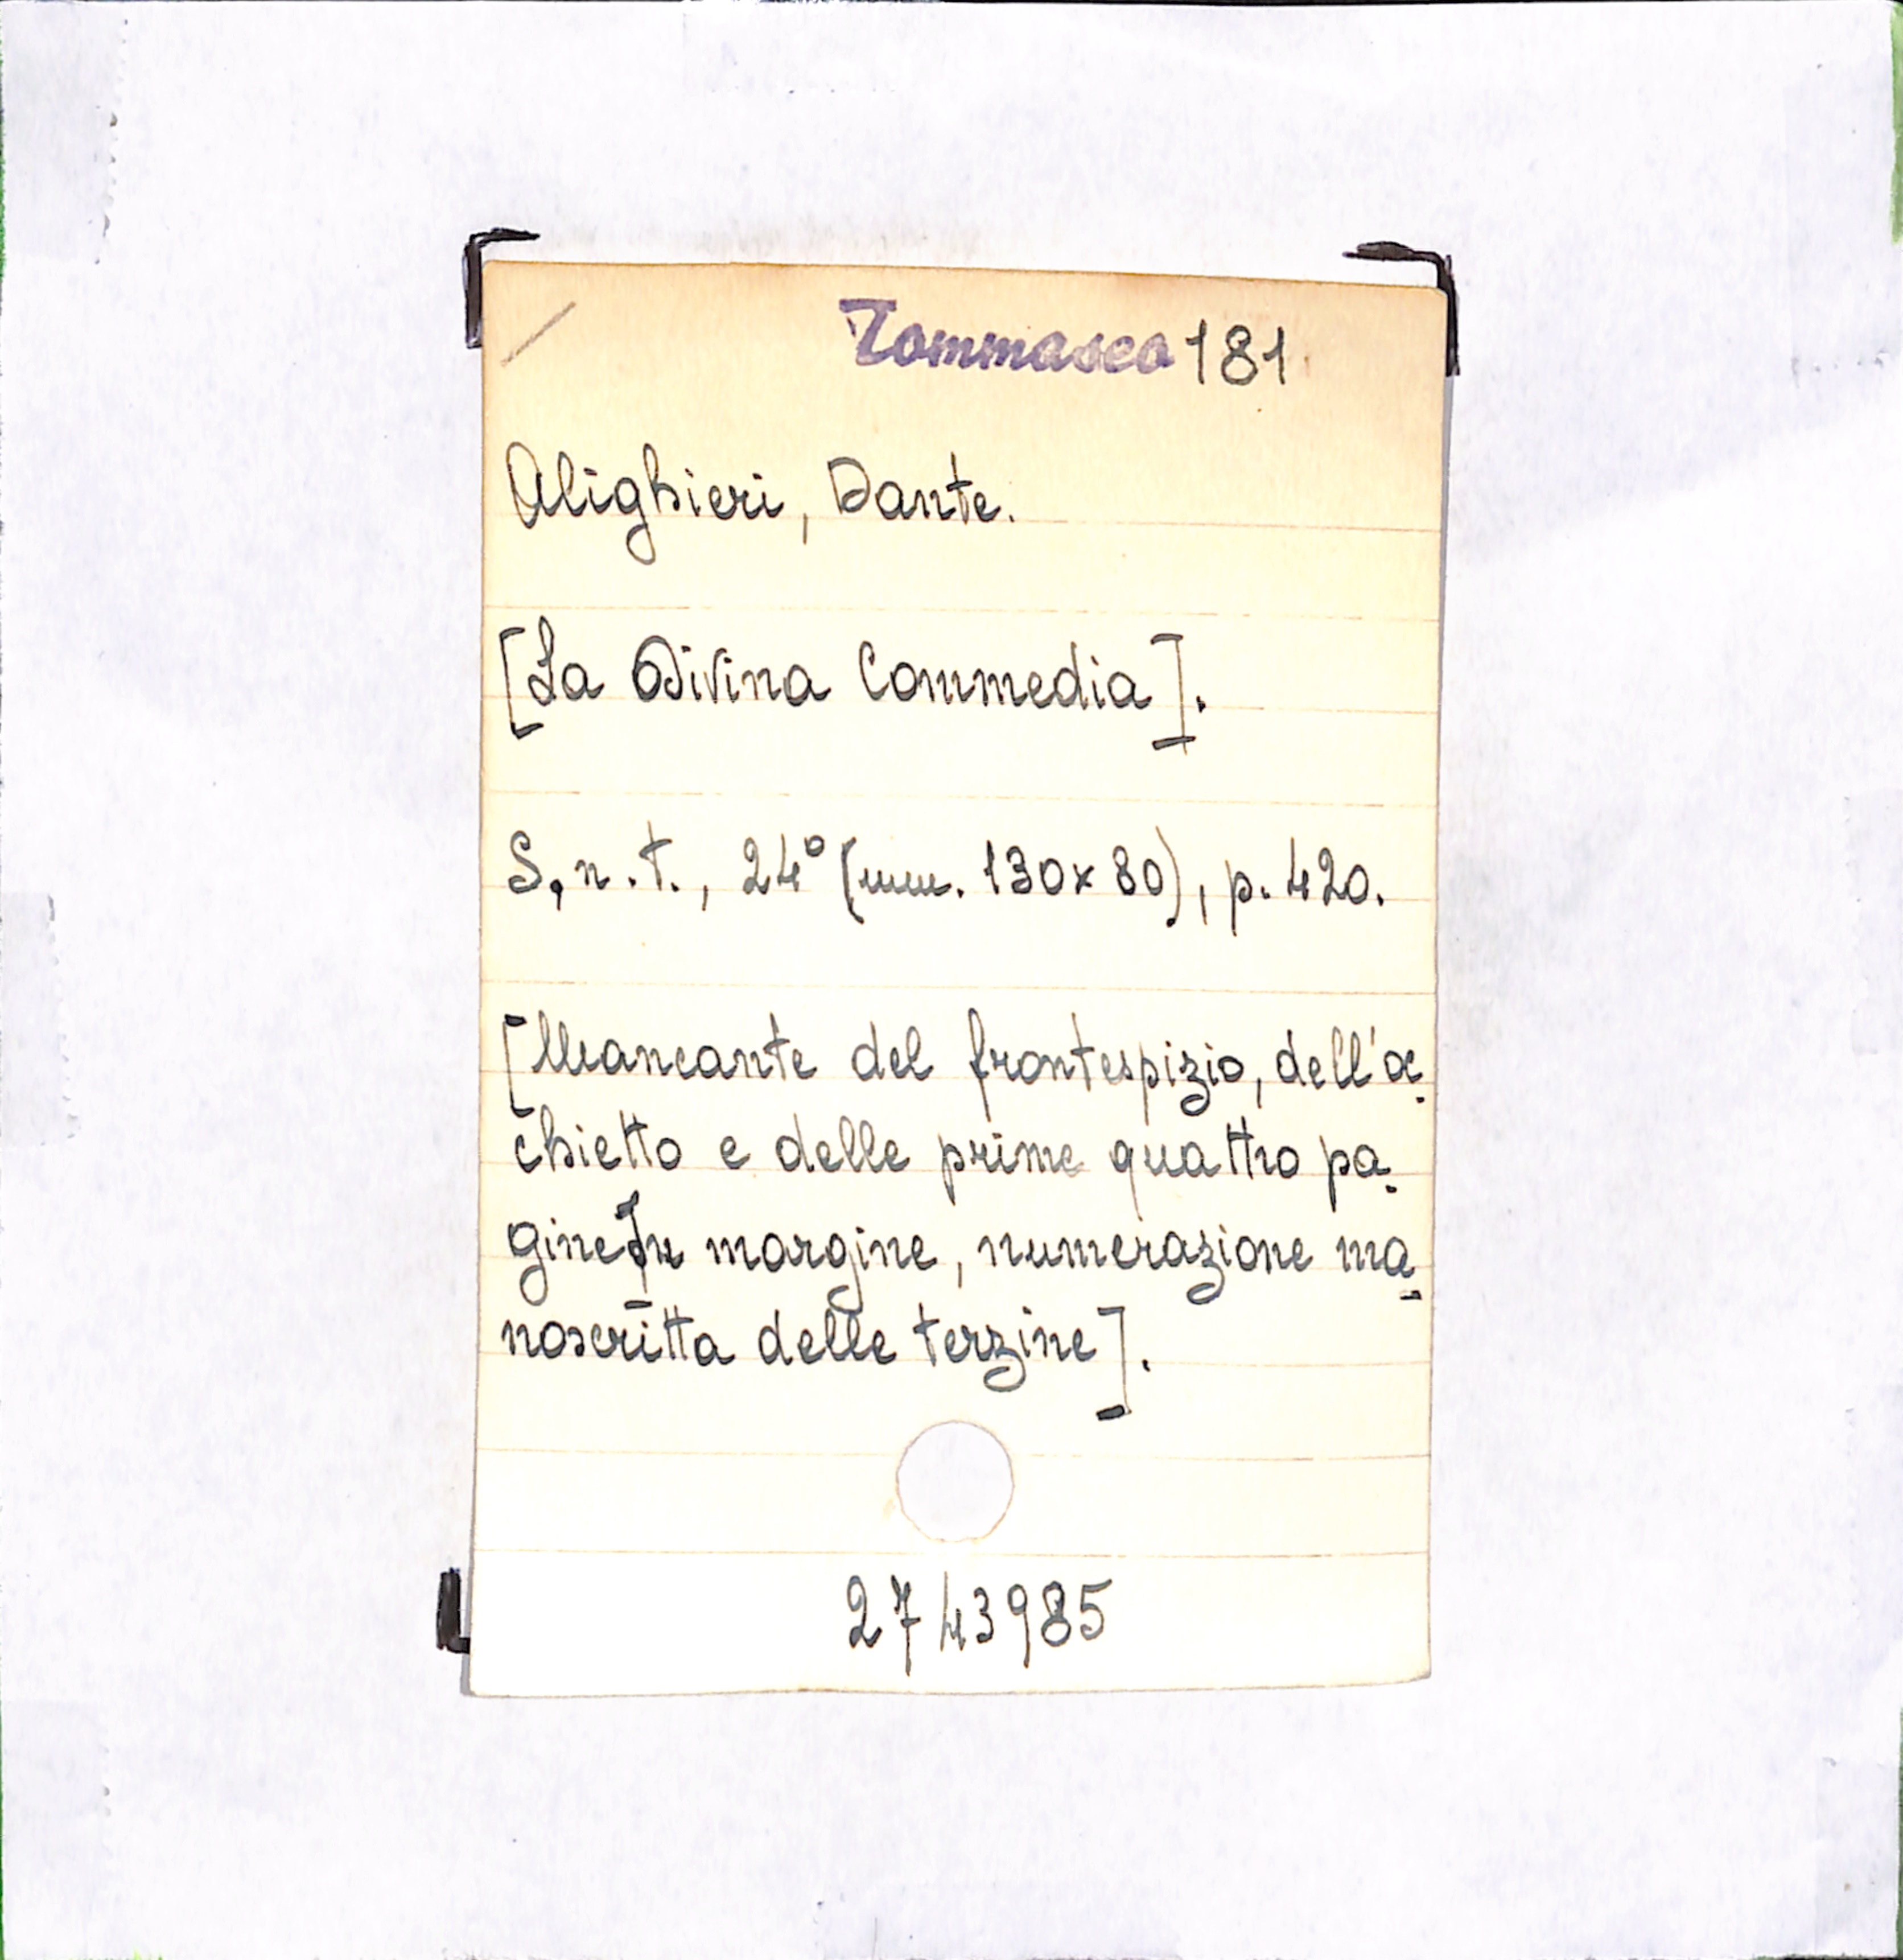 Tommaseo 181
Alighieri, Dante.
[La Divina Commedia].
S.n.t., 24° (mm. 130x80), p. 420.
[Mancante del frontespizio, dell'oc-
chietto e delle prime quattro pa-
gine. In margine, numerazione ma-
noscritta delle terzine].
2743985